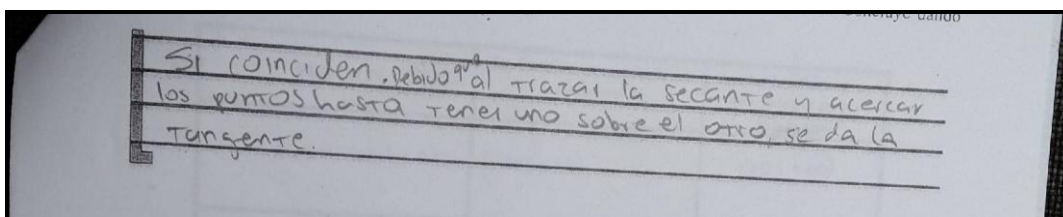 Concluye dando
Si coinciden. Debido que al trazar la secante y acercar
los puntos hasta tener uno sobre el otro, se da la
tangente.